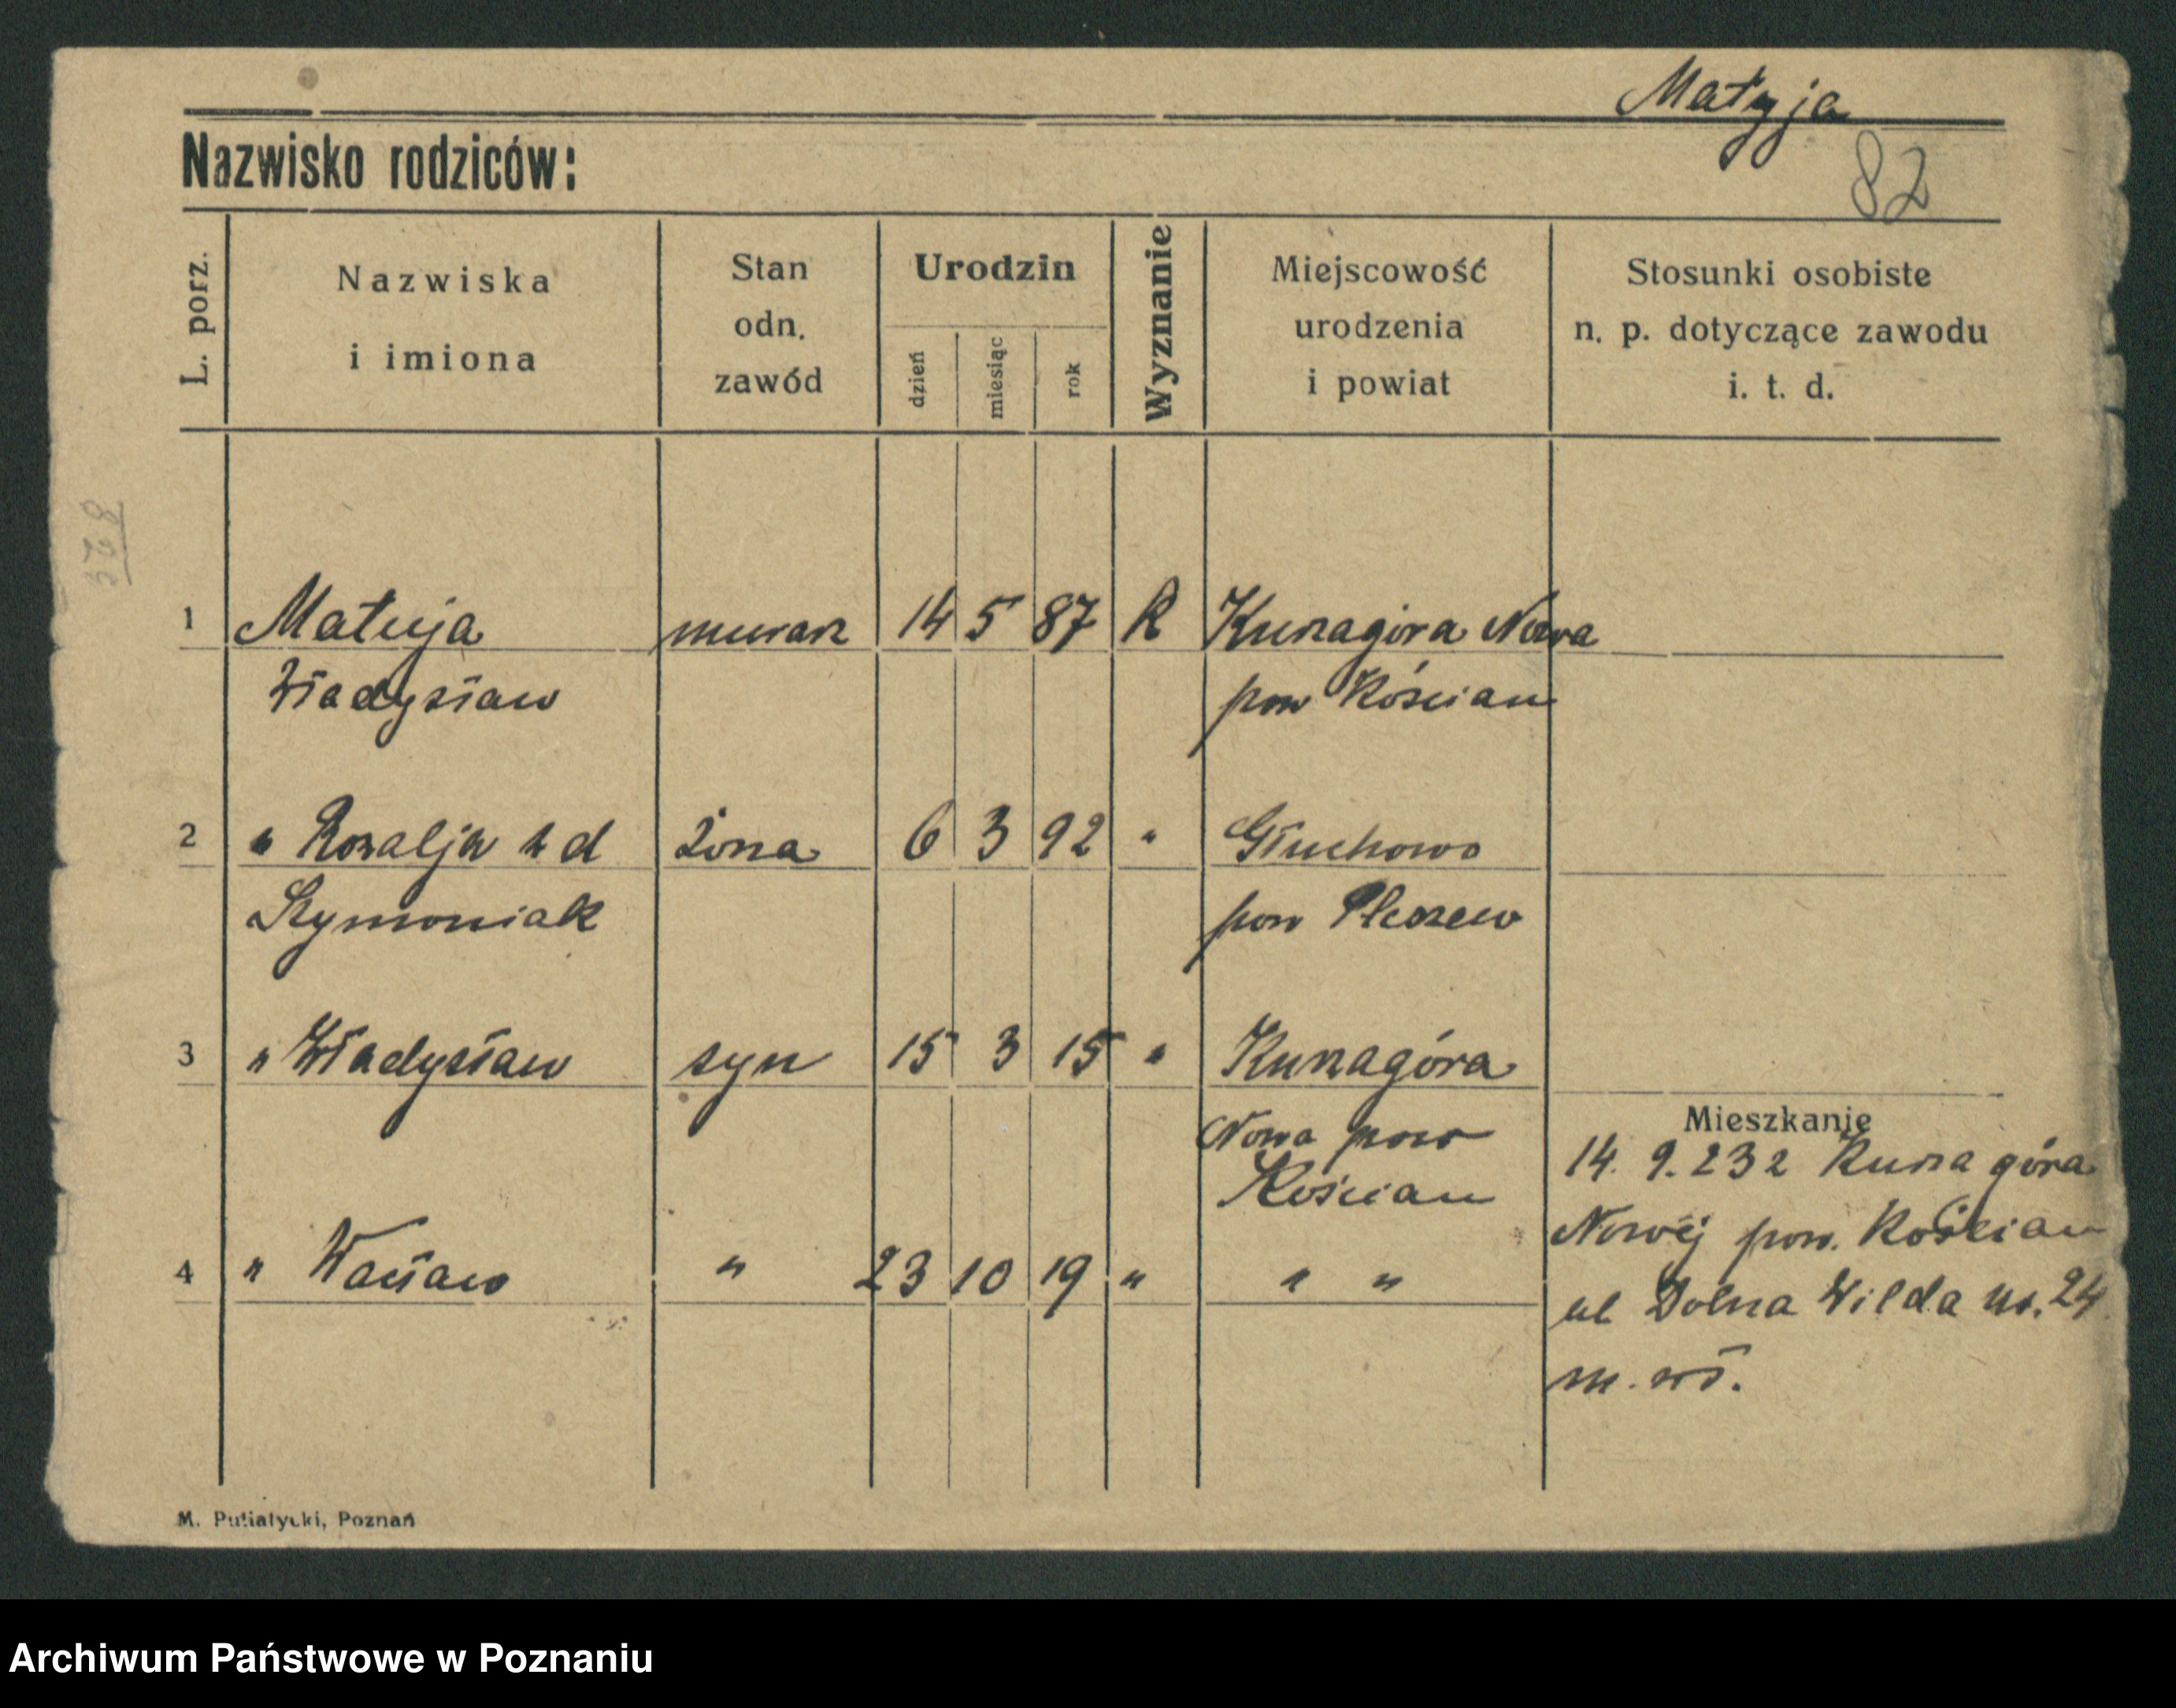 Matyja
Nazwisko rodziców:
82
L. porz.
Nazwiska
i imiona
Stan
odn.
zawód
Urodzin
dzień
miesiąc
rok
Wyznanie
Miejscowość
urodzenia
i powiat
Stosunki osobiste
n. p. dotyczące zawodu
i. t. d.
1 Matyja murarz 14 5 87 R Kunagóra Nowa
Władysław pow Kościan
2 " Rozalja z d żona 6 3 92 " Głuchowo
Szymoniak pow Pleszew
3 " Władysław syn 15 3 15 " Kunagóra
Nowa pow
Kościan
4 " Wacław " 23 10 19 " " "
Mieszkanie
14. 9. 232 Kunagóra
Nowej pow. Kościan
ul Dolna Wilda nr. 24
m. wł.
M. Putiatycki, Poznań
Archiwum Państwowe w Poznaniu